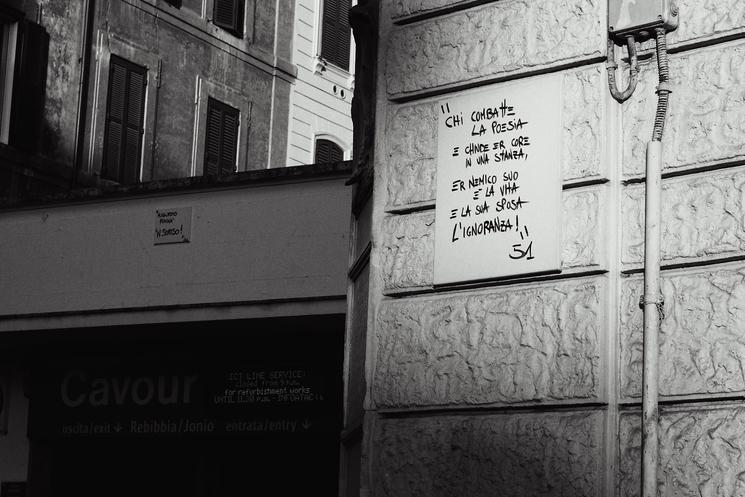 "
CHI COMBATTE
LA POESIA
E CHIUDE ER CORE
IN UNA STANZA,
ER NEMICO SUO
È LA VITA
E LA SUA SPOSA
L'IGNORANZA!"
51
'N SORISO!
Cavour
ICI LINE SERVICE:
closed from 9 p.m.
for refurbishment works
UNTIL 11.30 p.m. - INFOATAC.I
uscita/exit ↓ Rebibbia/Jonio entrata/entry ↓